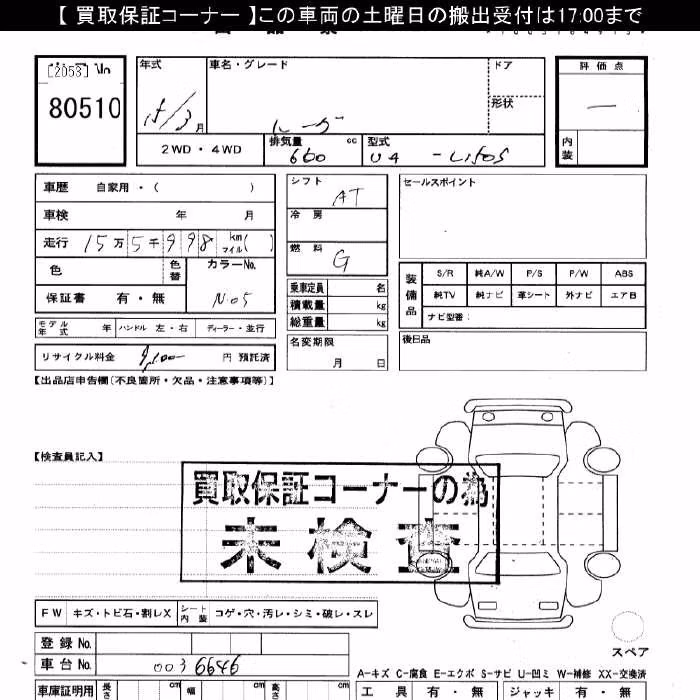 【 買取保証コーナー 】この車両の土曜日の搬出受付は17:00まで
[2053] No
80510
年式
15/3月
車名・グレード
ドア
形状
評価点
内装
2WD・4WD
排気量 660 cc
型式
車歴 自家用・( )
車検 年 月
走行 15万5千998 km マイル( )
色 色替 カラーNo.
N-05
保証書 有・無
モデル年式 年 ハンドル 左・右 ディーラー・並行
リサイクル料金 円 預託済
シフト AT
冷房
燃料 G
乗車定員 名
積載量 kg
総重量 kg
名変期限
月 日
セールスポイント
装備品
S/R 純A/W P/S P/W ABS
純TV 純ナビ 革シート 外ナビ エアB
ナビ型番:
後日品
【出品店申告欄(不良箇所・欠品・注意事項等)】
【検査員記入】
買取保証コーナーの為
未検査
FW キズ・トビ石・割レX シート内装 コゲ・穴・汚レ・シミ・破レ・スレ
スペア
登録 No.
車台 No. 0036646
A-キズ C-腐食 E-エクボ S-サビ U-凹ミ W-補修 XX-交換済
車庫証明用 長さ cm 幅 cm 高さ cm
工具 有・無 ジャッキ 有・無